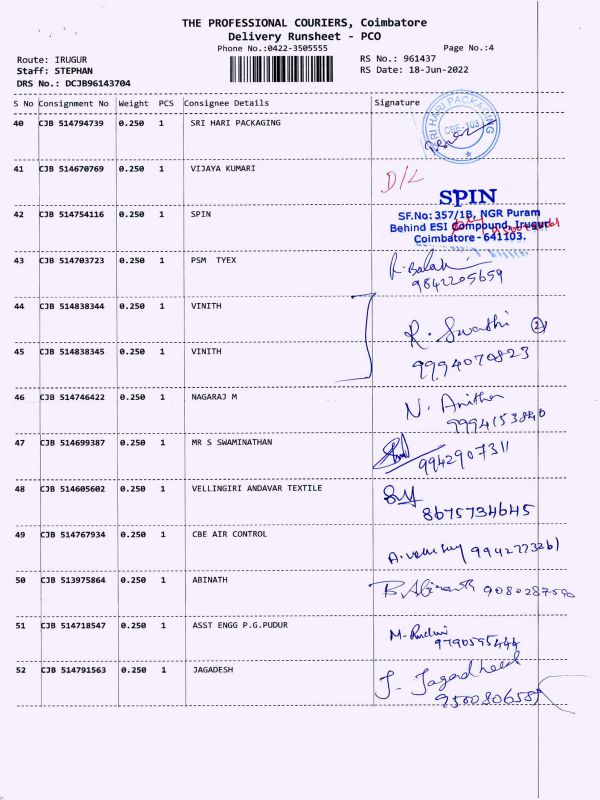 THE PROFESSIONAL COURIERS, Coimbatore
Delivery Runsheet - PCO
Phone No.:0422-3505555 Page No.:4
Route: IRUGUR RS No.: 961437
Staff: STEPHAN RS Date: 18-Jun-2022
DRS No.: DCJB96143704
S No Consignment No Weight PCS Consignee Details Signature
40 CJB 514794739 0.250 1 SRI HARI PACKAGING
SRI HARI PACKAGING
CBE-103
41 CJB 514670769 0.250 1 VIJAYA KUMARI D/L
42 CJB 514754116 0.250 1 SPIN
SPIN
SF.No: 357/1B, NGR Puram
Behind ESI Compound, Irugur
Coimbatore - 641103.
43 CJB 514703723 0.250 1 PSM TYEX R. Balaki
9842205659
44 CJB 514838344 0.250 1 VINITH R. Swathi 2
45 CJB 514838345 0.250 1 VINITH 9994070823
46 CJB 514746422 0.250 1 NAGARAJ M N. Anitha
9994153840
47 CJB 514699387 0.250 1 MR S SWAMINATHAN
9942907311
48 CJB 514605602 0.250 1 VELLINGIRI ANDAVAR TEXTILE
8675734645
49 CJB 514767934 0.250 1 CBE AIR CONTROL
50 CJB 513975864 0.250 1 ABINATH B. Abinanth
51 CJB 514718547 0.250 1 ASST ENGG P.G.PUDUR
9790595444
52 CJB 514791563 0.250 1 JAGADESH J- Jagadheesh